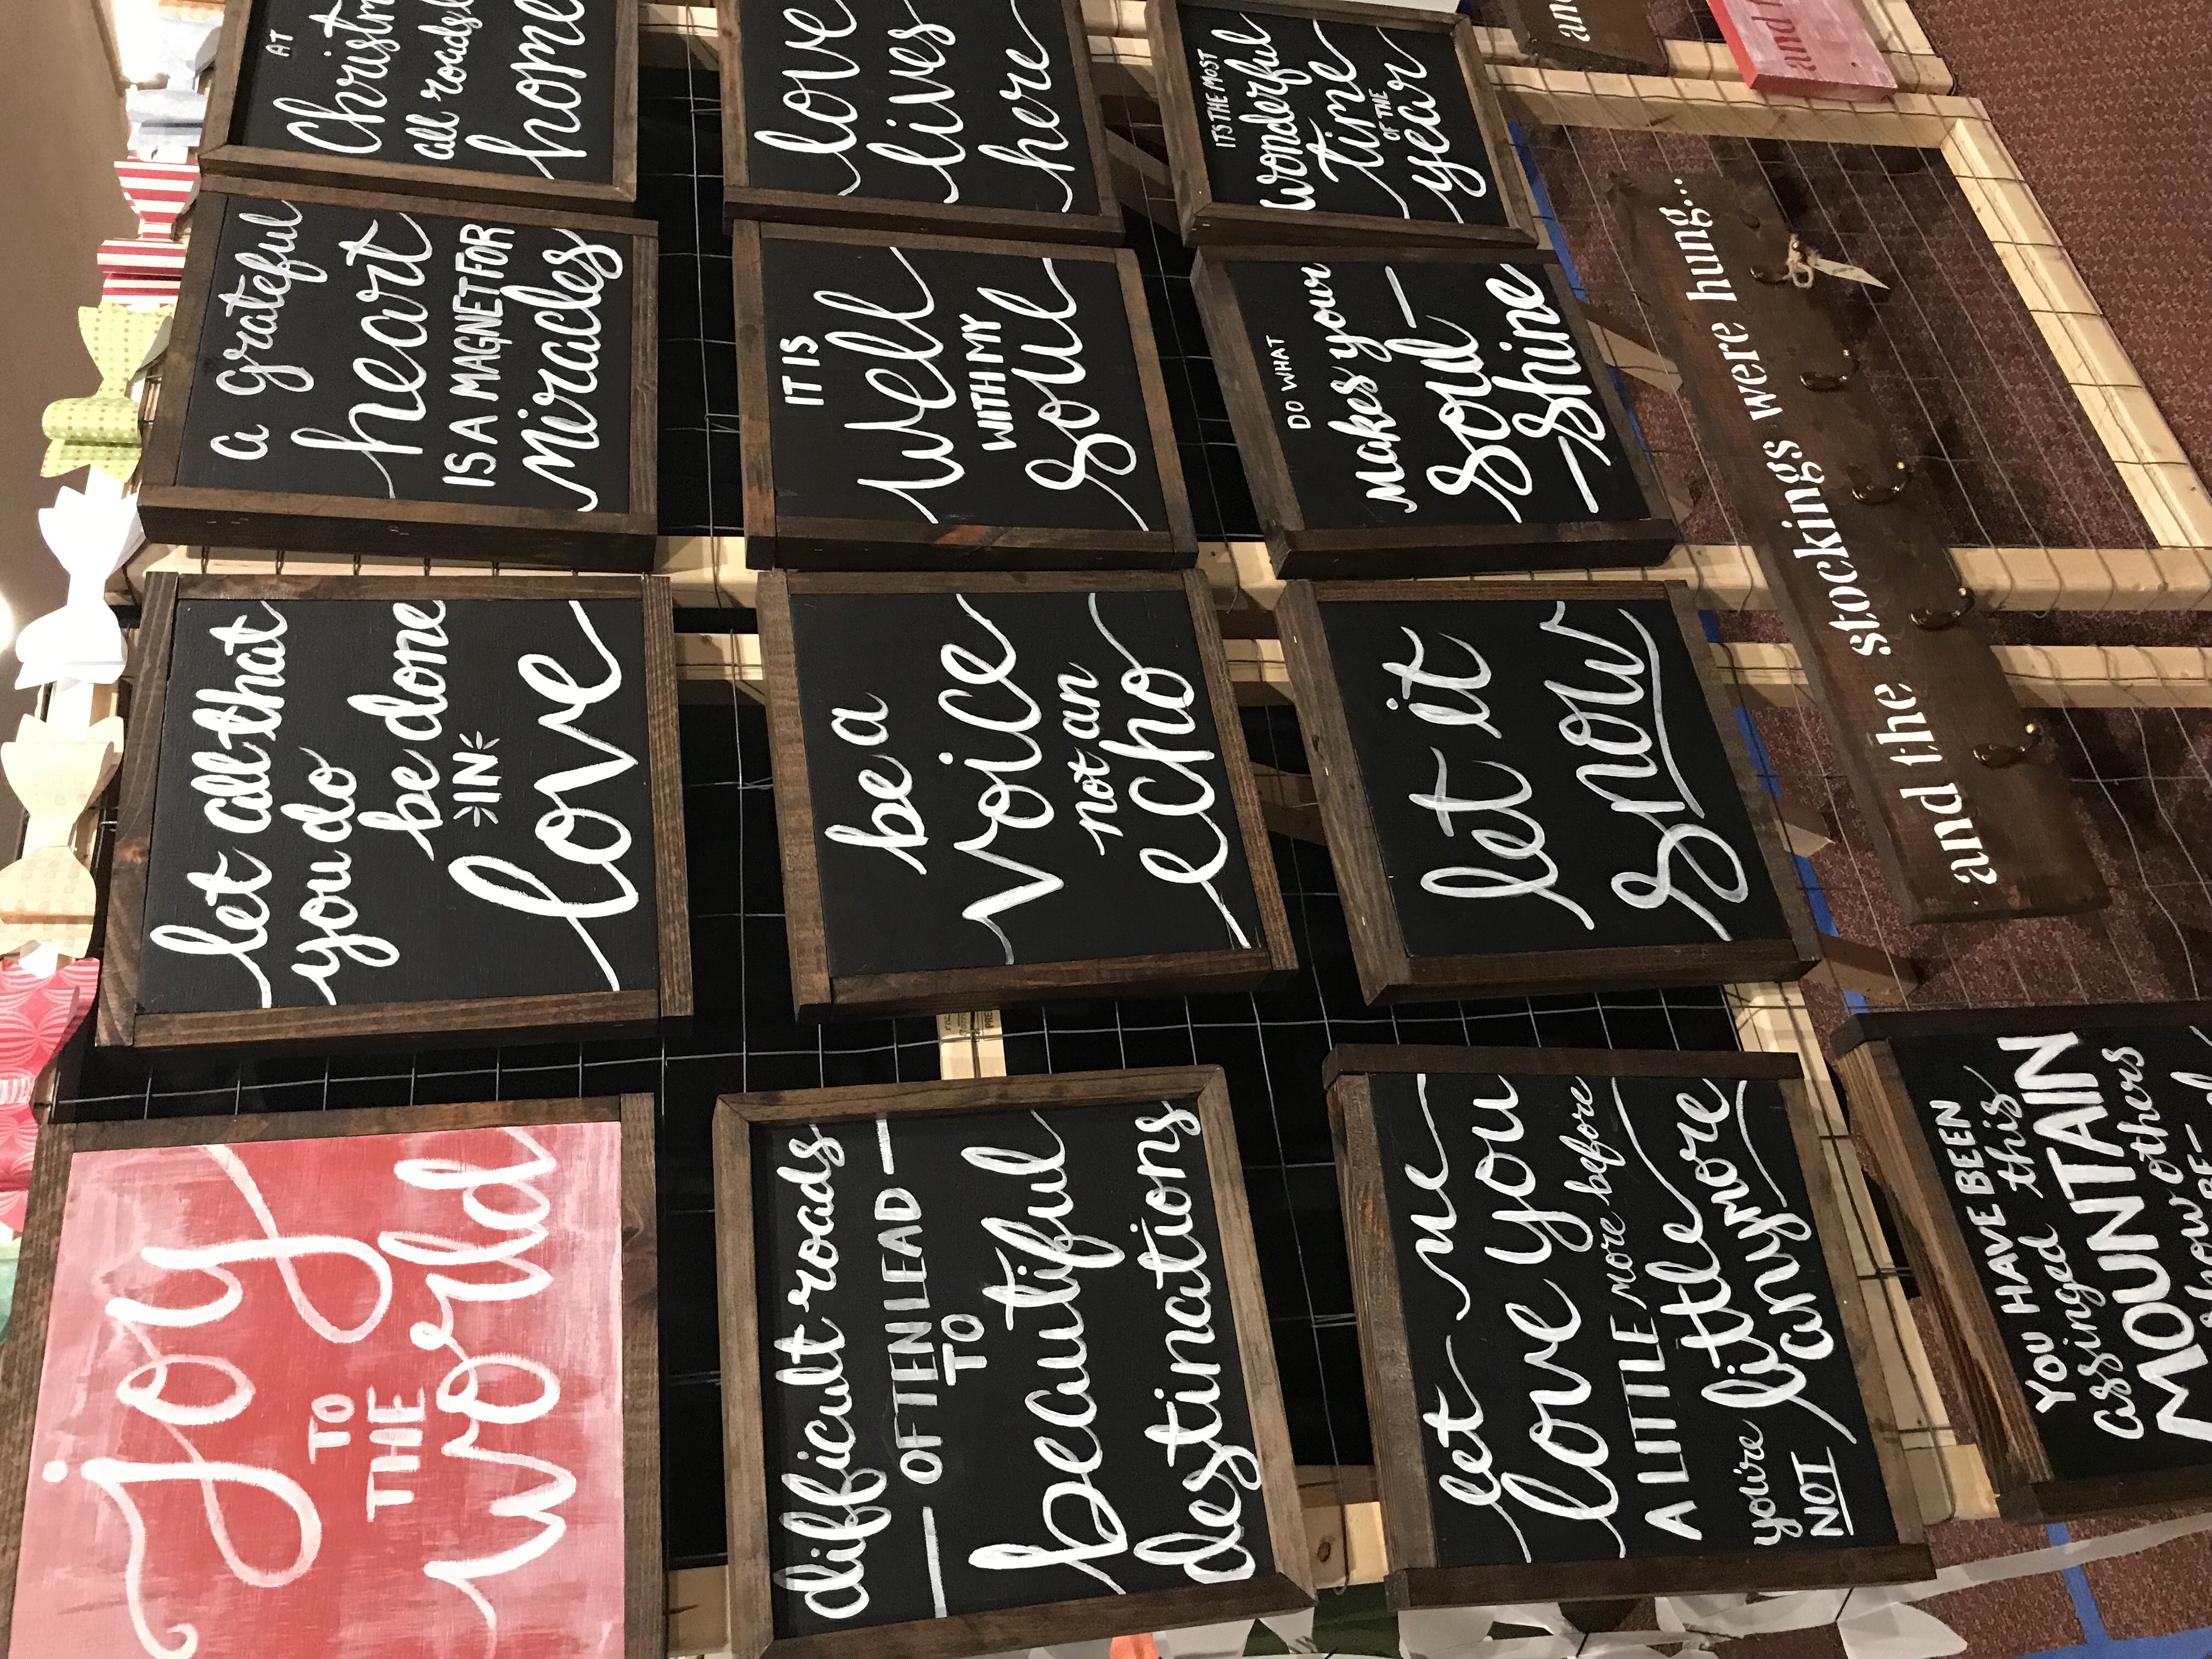 joy
TO
THE
world
let all that
you do
be done
IN
love
a grateful
heart
IS A MAGNET FOR
miracles
AT
Christm
all roads l
home
difficult roads
OFTEN LEAD
TO
beautiful
destinations
be a
voice
not an
echo
IT IS
well
WITH MY
soul
love
lives
here
let me
love you
A LITTLE more before
you're little
NOT anymore
let it
snow
DO WHAT
makes your
soul
shine
ITS THE MOST
wonderful
time
OF THE
year
and the stockings were hung...
and
and
YOU HAVE BEEN
assinged this
MOUNTAIN
show others
BE